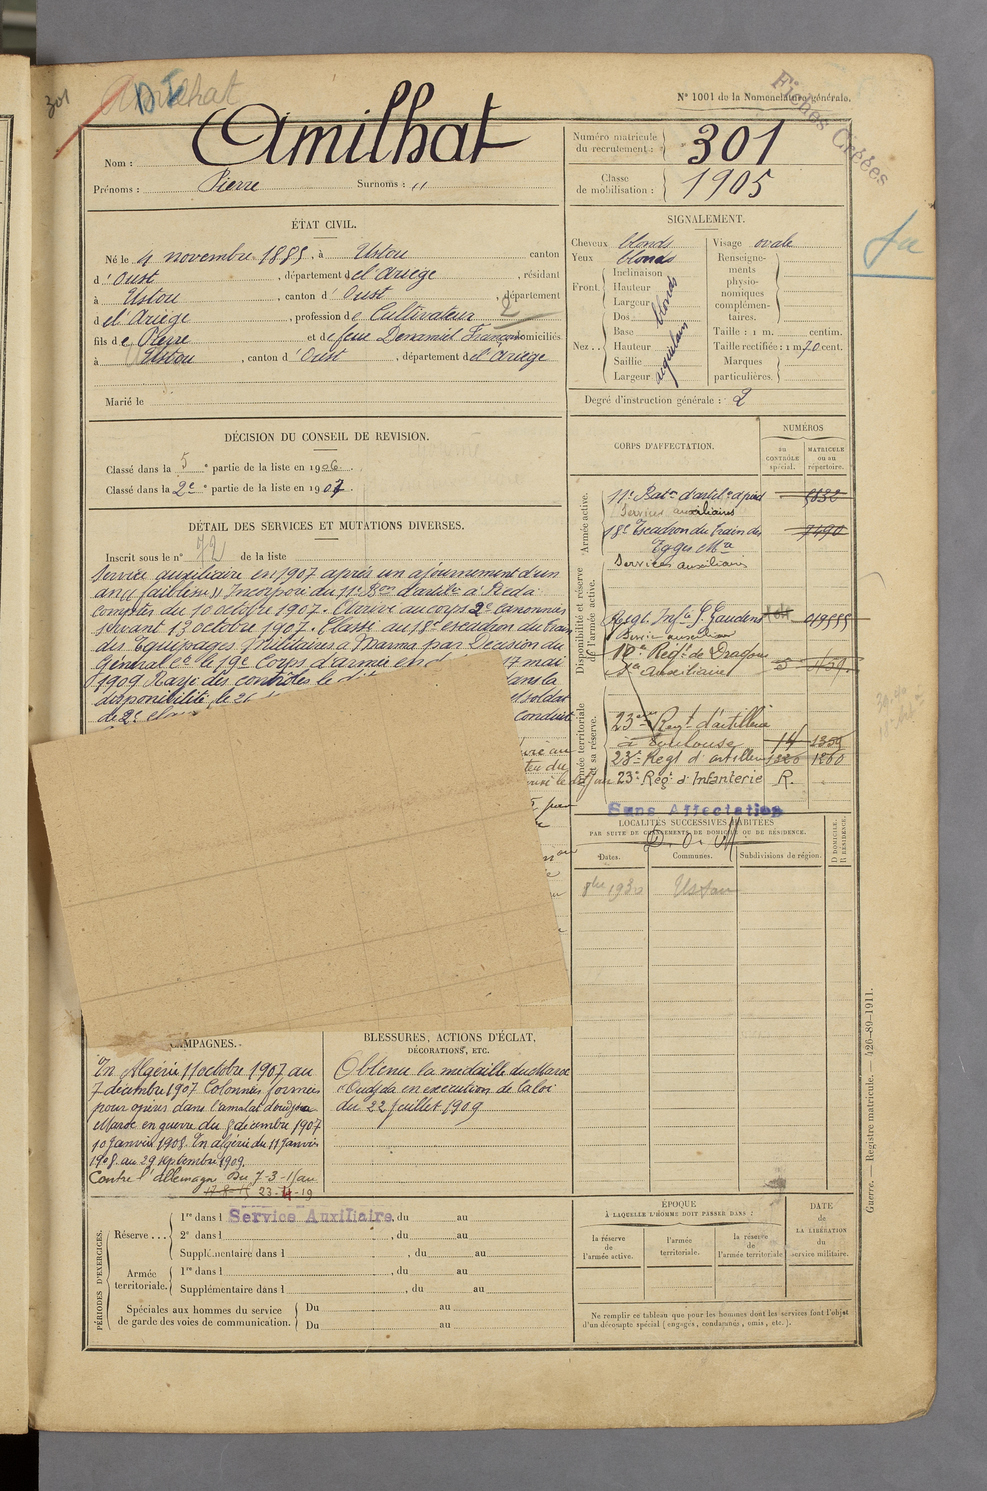 301
Amilhat
N° 1001 de la Nomenclature générale.
Fiches Créées
Nom : Amilhat
Prénoms : Pierre Surnoms : "
Numéro matricule du recrutement : 301
Classe de mobilisation : 1905
ÉTAT CIVIL.
Né le 4 novembre 1885, à Ustou canton
d'Oust, département de l'Ariège, résidant
à Ustou, canton d'Oust, département
de l'Ariège, profession de Cultivateur 2
fils de Pierre et de feue Françoise domiciliés
à Ustou, canton d'Oust, département de l'Ariège
Marié le
SIGNALEMENT.
Cheveux blonds
Yeux blonds
Front. Inclinaison
Hauteur
Largeur
blonds
Nez. Dos
Base
Hauteur
Saillie
Largeur
Visage ovale
Renseignements physionomiques complémentaires.
Taille : 1 m. centim.
Taille rectifiée : 1 m 70 cent.
Marques particulières.
Degré d'instruction générale : 2
DÉCISION DU CONSEIL DE REVISION.
Classé dans la 5e partie de la liste en 1906.
Classé dans la 2e partie de la liste en 1907
DÉTAIL DES SERVICES ET MUTATIONS DIVERSES.
Inscrit sous le n° 72 de la liste
Service auxiliaire en 1907 après un ajournement d'un
an (faiblesse) Incorporé au 11e Bon d'artie à Pied à
compter du 10 octobre 1907. Arrivé au corps 2e canonnier
servant 13 octobre 1907. Classé au 18e escadron du train
des Equipages Militaires à Marnia par Décision du
Général Ct le 19e Corps d'armée en 17 mai
1909 Rayé des contrôles le dans la
disponibilité, le 26 soldat
de 2e conduite
CORPS D'AFFECTATION.
NUMÉROS
au CONTRÔLE spécial.
MATRICULE ou au répertoire.
Disponibilité et réserve de l'armée active.
Armée active.
11e Baton d'artie à pied
Services auxiliaires
18e Escadron du train des
Eqges Mres
Services auxiliaires
Regt Infie St Gaudens
Service auxiliaire
10e Regt de Dragons
Sce Auxiliaire 5
Armée territoriale et sa réserve.
23eme Regt d'artillerie
à Toulouse 14 1359
23e Regt d'artillerie 1260
23e Reg. d'Infanterie R.
Sans Affectation
D. O. M
LOCALITÉS SUCCESSIVES HABITÉES
PAR SUITE DE CHANGEMENTS DE DOMICILE OU DE RÉSIDENCE.
Dates. Communes. Subdivisions de région. D DOMICILE. R RÉSIDENCE.
8bre 1930 Ustou
CAMPAGNES.
En Algérie 11 octobre 1907 au
7 décembre 1907 Colonnes formées
pour opérer dans l'amalat d'oudjda
Maroc en guerre du 8 décembre 1907
10 Janvier 1908. En algérie du 11 Janvier
1908 au 29 septembre 1909.
Contre l'allemagne Du 7-3-15 au
23-4-19
BLESSURES, ACTIONS D'ÉCLAT,
DÉCORATIONS, ETC.
Obtenu la médaille du Maroc
"Oudjda en exécution de la loi
du 22 Juillet 1909
PÉRIODES D'EXERCICES.
Réserve... 1re dans l Service Auxiliaire, du au
2e dans l , du au
Supplémentaire dans l , du au
Armée territoriale. 1re dans l , du au
Supplémentaire dans l , du au
Spéciales aux hommes du service de garde des voies de communication. Du au
Du au
ÉPOQUE
À LAQUELLE L'HOMME DOIT PASSER DANS :
la réserve de l'armée active.
l'armée territoriale.
la réserve de l'armée territoriale
DATE de LA LIBÉRATION du service militaire.
Ne remplir ce tableau que pour les hommes dont les services font l'objet
d'un décompte spécial (engagés, condamnés, omis, etc.).
Guerre. — Registre matricule. — 426-89-1911.